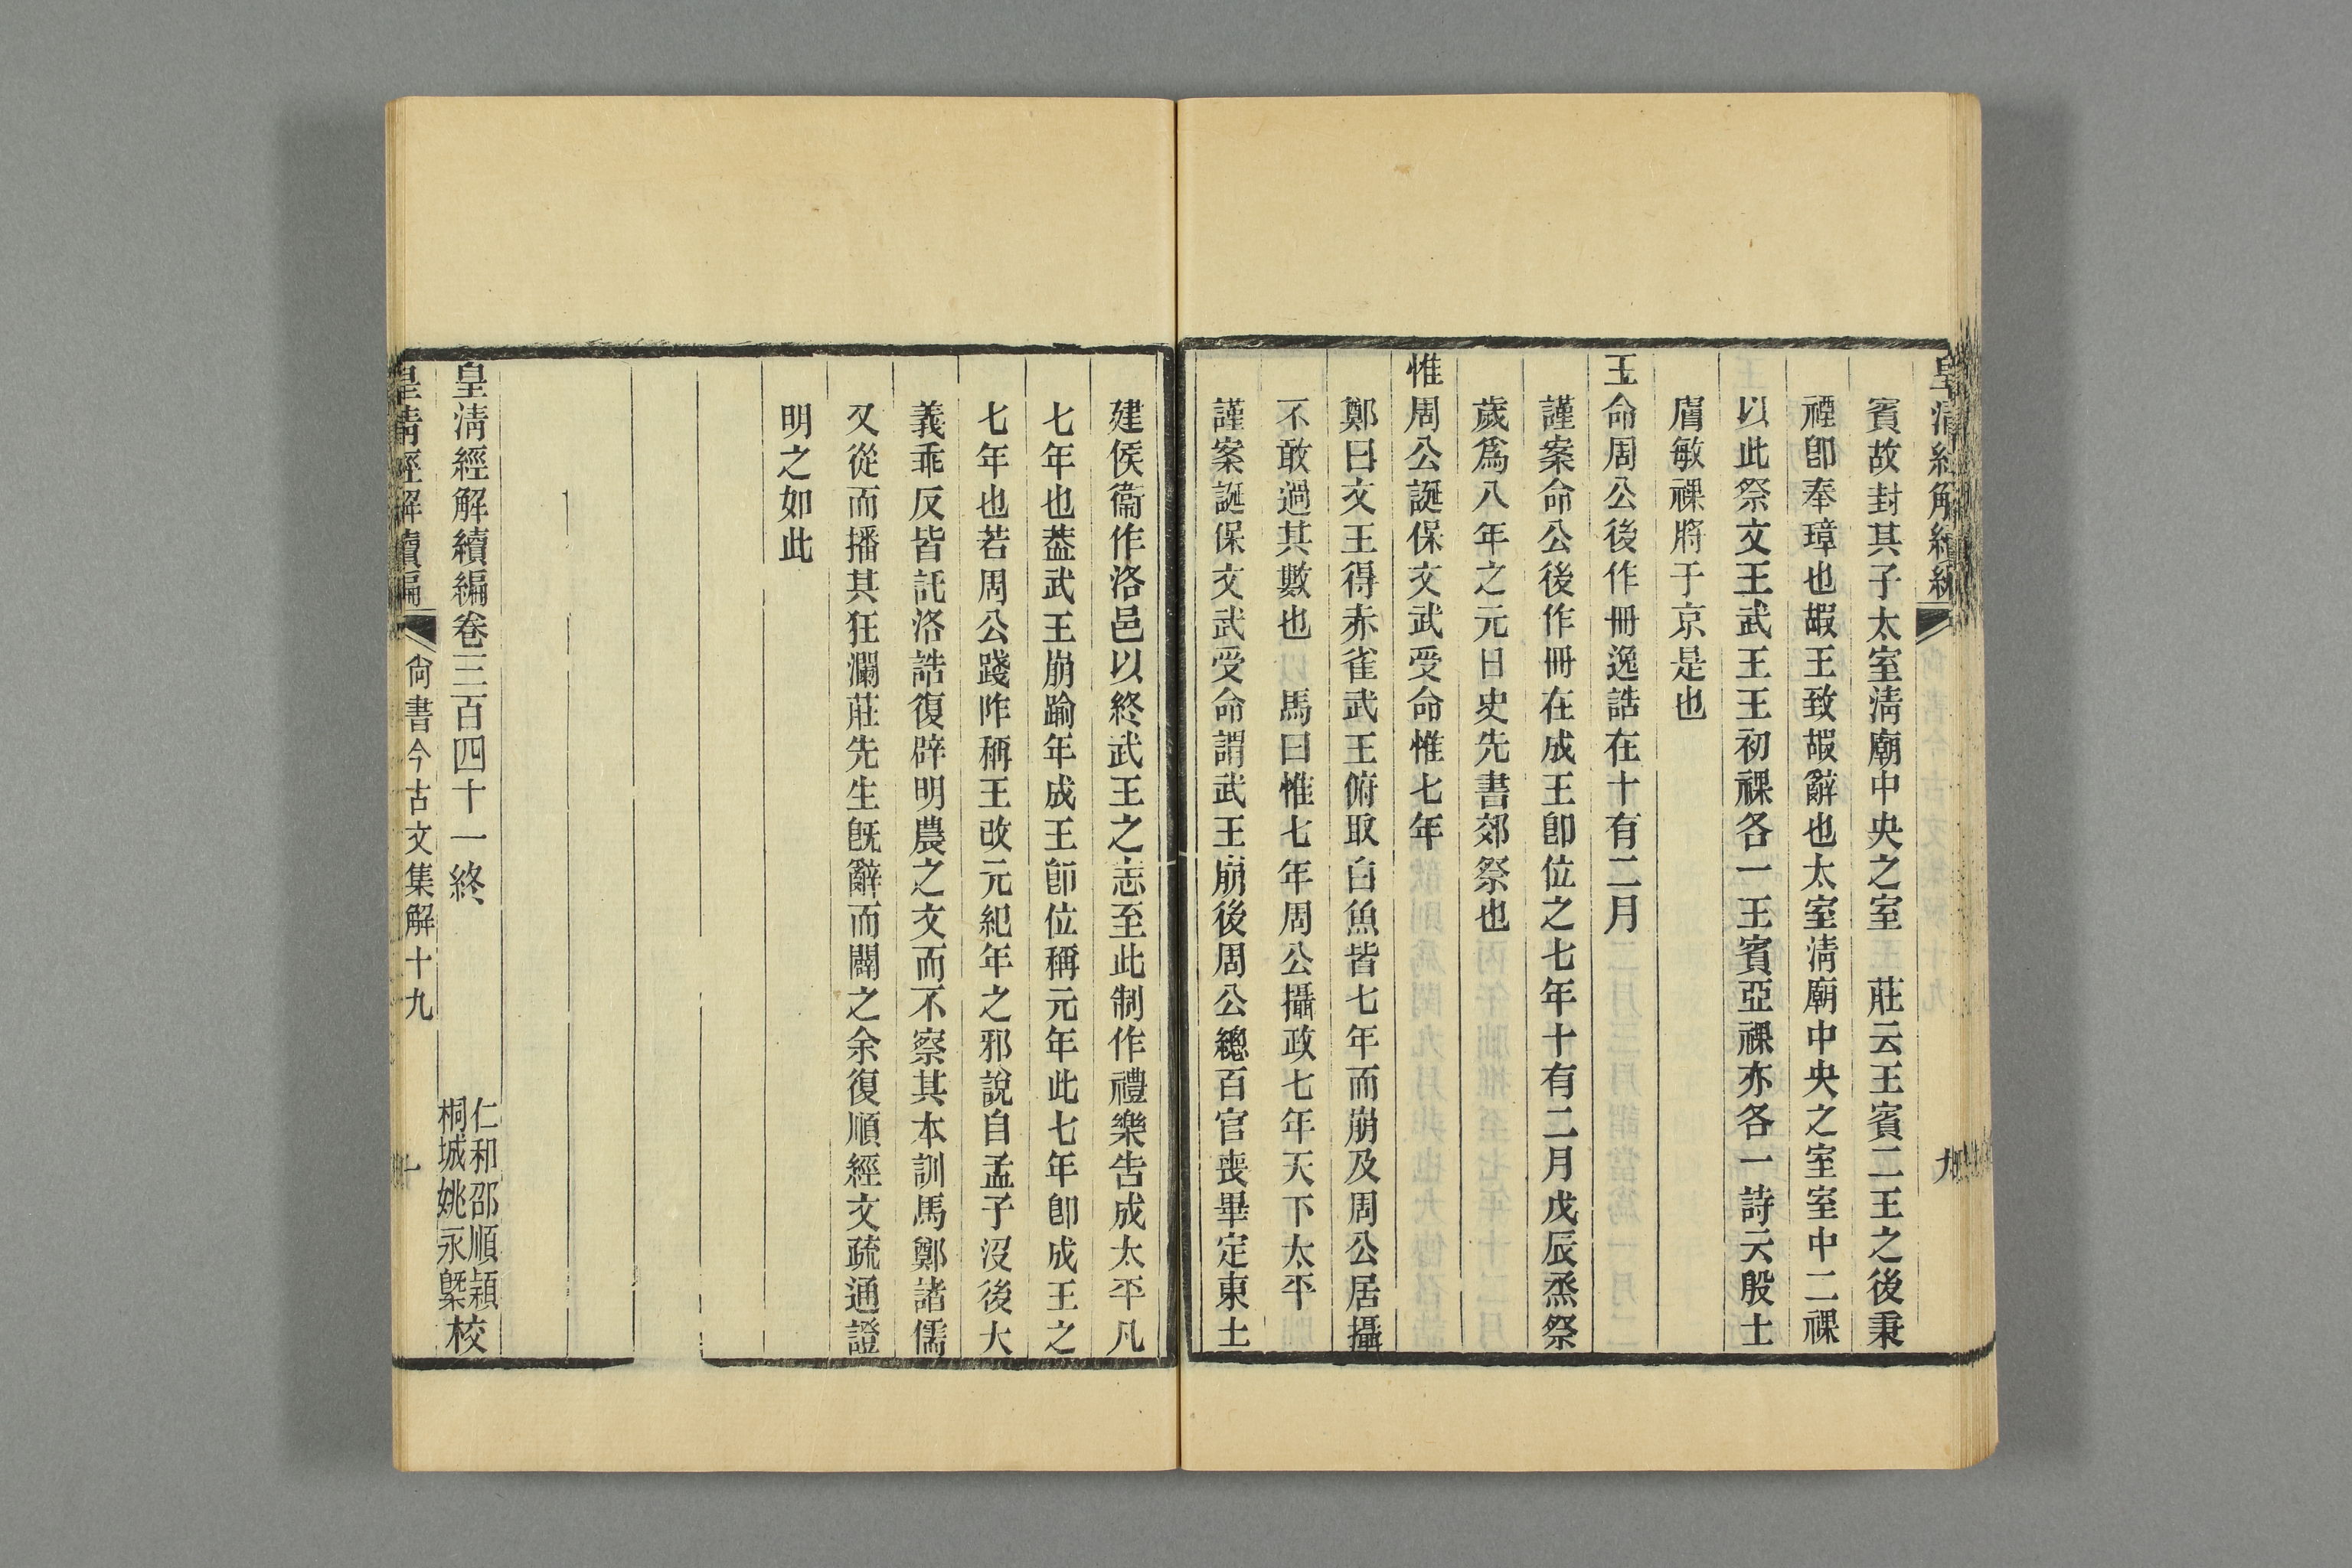 皇清經解續編
九
賓故封其子太室淸廟中央之室　莊云王賓二王之後秉
禋卽奉璋也嘏王致嘏辭也太室淸廟中央之室室中二祼
以此祭文王武王王初祼各一王賓亞祼亦各一詩云殷士
膚敏祼將于京是也
王命周公後作冊逸誥在十有二月
謹案命公後作冊在成王卽位之七年十有二月戊辰烝祭
歲爲八年之元日史先書郊祭也
惟周公誕保文武受命惟七年
鄭曰文王得赤雀武王俯取白魚皆七年而崩及周公居攝
不敢過其數也　馬曰惟七年周公攝政七年天下太平
謹案誕保文武受命謂武王崩後周公總百官喪畢定東土
建侯衞作洛邑以終武王之志至此制作禮樂吿成太平凡
七年也葢武王崩踰年成王卽位稱元年此七年卽成王之
七年也若周公踐阼稱王改元紀年之邪說自孟子沒後大
義乖反皆託洛誥復辟明農之文而不察其本訓馬鄭諸儒
又從而播其狂瀾莊先生旣辭而闢之余復順經文疏通證
明之如此
皇淸經解續編卷三百四十一終
仁和邵順頴
桐城姚永㮣校
皇清經解續編
尙書今古文集解十九
十